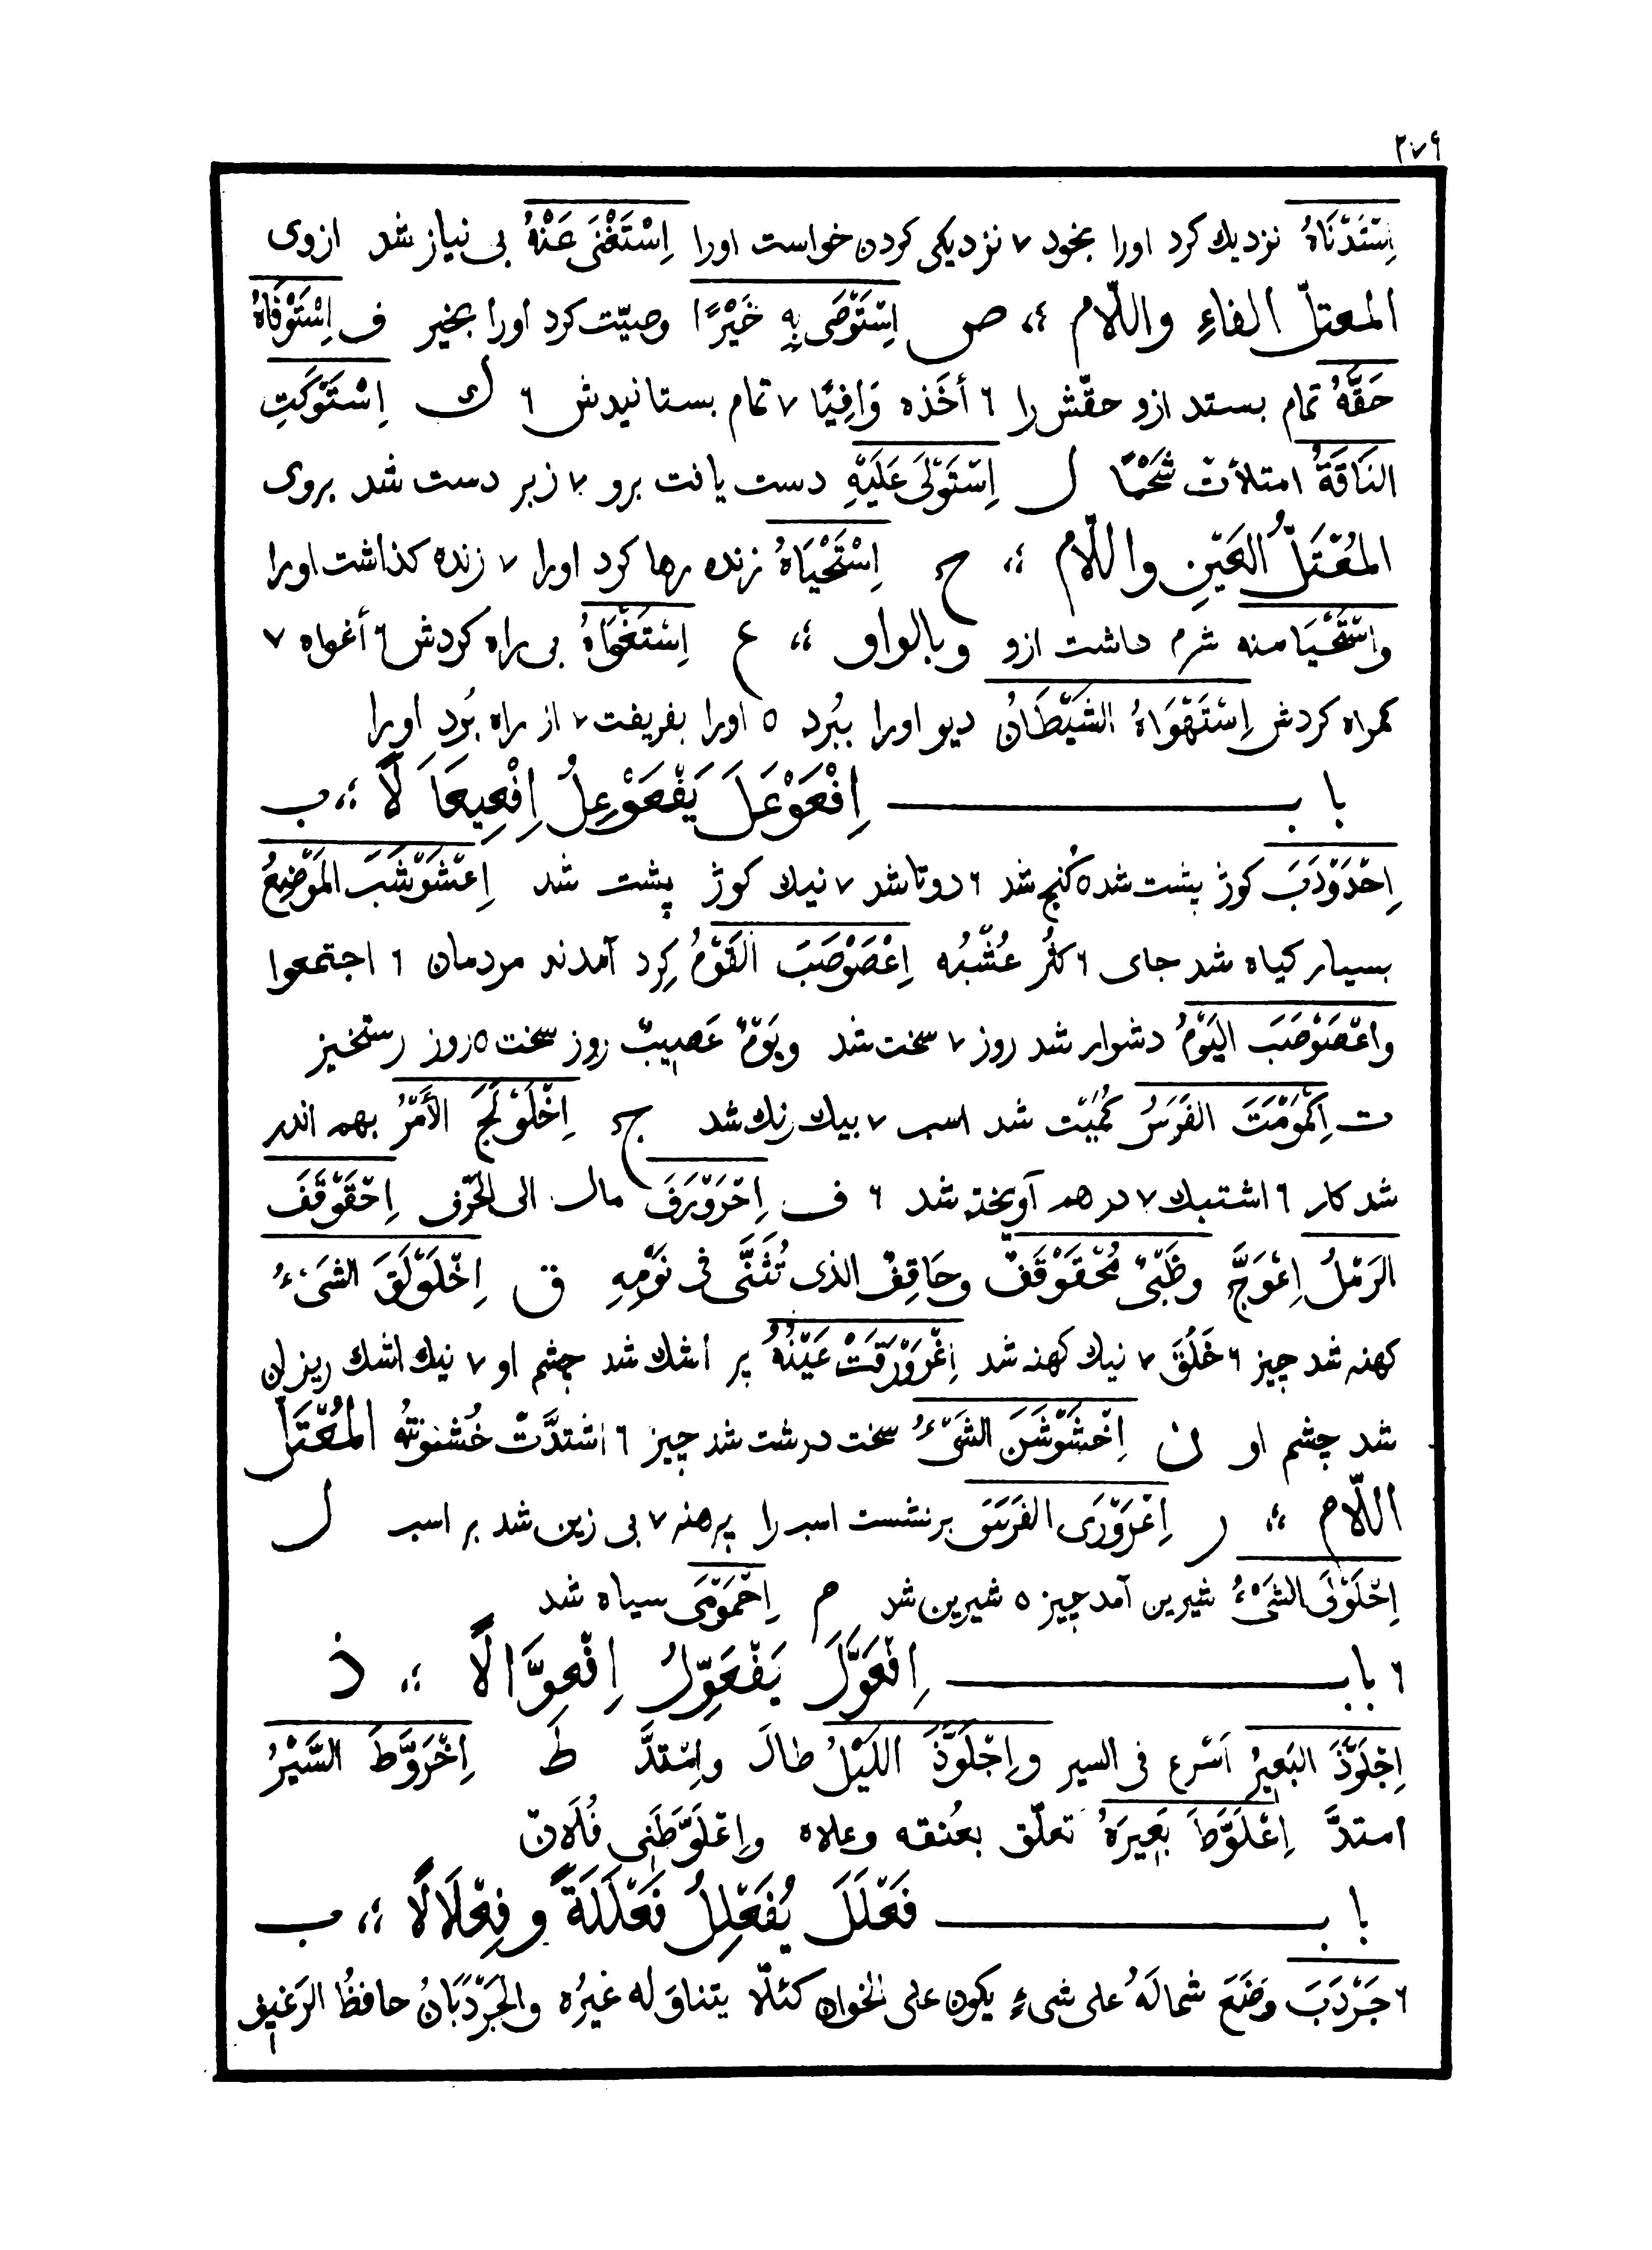 ٢٧٦
اِسْتَدْنَاهُ نزديك كرد اورا بخود ٧ نزديكى كردن خواست اورا اِسْتَغْنَى عَنْهُ بى نياز شد ازوى
المعتلّ الفاءِ واللّام ؛، ص اِسْتَوْصَى بِهِ خَيْرًا وصيّت كرد اورا بخير ف اِسْتَوْفَاهُ
حَقَّهُ تمام بستد ازو حقّش را ٦ أخَذه وَافِيًا ٧ تمام بستانيدش ٦ ك اِسْتَوْكَتِ
النَاقَةُ امتلأتْ شَحْمًا ل اِسْتَوْلَى عَلَيْهِ دست يافت برو ٧ زبر دست شد بروى
المُعْتَلُّ العَيْنِ واللّام ؛، ح اِسْتَحْيَاهُ زنده رها كرد اورا ٧ زنده كذاشت اورا
واسْتَحْيَا منه شرم داشت ازو وبالواو ؛، ع اِسْتَغْوَاهُ بى راه كردش ٦ أغواه ٧
كمراه كردش اِسْتَهْوَاهُ الشَيْطَانُ ديو اورا ببُرد ٥ اورا بفريفت ٧ از راه بُرد اورا
بابــــــــ اِفْعَوْعَلَ يَفْعَوْعِلُ اِفْعِيعَالًا ؛، ب
اِحْدَوْدَبَ كوژ پشت شد ٥ كُنج شد ٦ دوتا شد ٧ نيك كوژ پشت شد اِعْشَوْشَبَ المَوْضِعُ
بسيار كياه شد جاى ٦ كثُر عُشْبُه اِعْصَوْصَبَ القَوْمُ كِرد آمدند مردمان ٦ اجتمعوا
واعْصَوْصَبَ اليَوْمُ دشوار شد روز ٧ سخت شد ويَوْمٌ عَصِيبٌ روز سخت ٥ روز رستخيز
ت اِكْمَوْمَتَ الفَرَسُ كُمَيْت شد اسب ٧ بيك رنك شد ج اِخْلَوْلَجَ الأَمْرُ بهم اندر
شد كار ٦ اشتبك ٧ در هم آويخته شد ٦ ف اِحْرَوْرَفَ مال الى الحَرْف اِحْقَوْقَفَ
الرَمْلُ اِعْوَجَّ وظَبْىٌ مُحْقَوْقِفٌ وحَاقِفٌ الذى تُثَنَّى فى نَوْمِهِ ق اِخْلَوْلَقَ الشَىْءُ
كهنه شد چيز ٦ خَلُقَ ٧ نيك كهنه شد اِغْرَوْرَقَتْ عَيْنُهُ پر اشك شد چشم او ٧ نيك اشك ريزان
شد چشم او ن اِخْشَوْشَنَ الشَىْءُ سخت درشت شد چيز ٦ اشتدَّتْ خُشنونتُه المُعْتَلّ
اللّام ؛، ر اِعْرَوْرَى الفَرَسَ برنشست اسب را برهنه ٧ بى زين شد بر اسب ل
اِحْلَوْلَى الشَىْءُ شيرين آمد چيز ٥ شيرين شد م اِحْمَوْمَى سياه شد
٦ بابــــــــ اِفْعَوَّلَ يَفْعَوِّلُ اِفْعِوَّالًا ؛، ذ
اِجْلَوَّذَ البَعِيرُ اَسْرع فى السير واِجْلَوَّذَ اللَيْلُ طالَ واِمْتدَّ ط اِخْرَوَّطَ السَّيْرُ
امتدَّ اِعْلَوَّطَ بَعِيرَهُ تعلّق بعُنقه وعلاه واِعْلَوَّطَنِى فُلَانٌ
بابــــــــ فَعْلَلَ يُفَعْلِلُ فَعْلَلَةً وفِعْلَالًا ؛، ب
٦ جَرْدَبَ وَضَعَ شمالَهُ على شىءٍ يكون على الخوان كئلّا يتناوَله غيرُه والجَرْدَبَانُ حافظُ الرَغيف